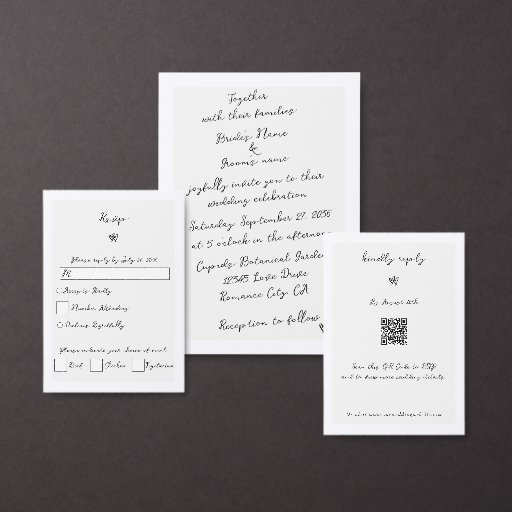 Together
with their families
Bride's Name
&
Groom's name
joyfully invite you to their
wedding celebration
Saturday September 27, 2036
at 5 o'clock in the afternoon
Cupids Botanical Garden
12345 Love Drive
Romance City, CA
Reception to follow
Rsvp
Please reply by July 27, 2036
M
Accepts
Number Attending
Declines Regretfully
Please indicate your choice of meal
Beef
Chicken
Vegetarian
kindly reply
by August 20th
Scan this QR Code to RSVP
and to know more wedding details.
Or visit